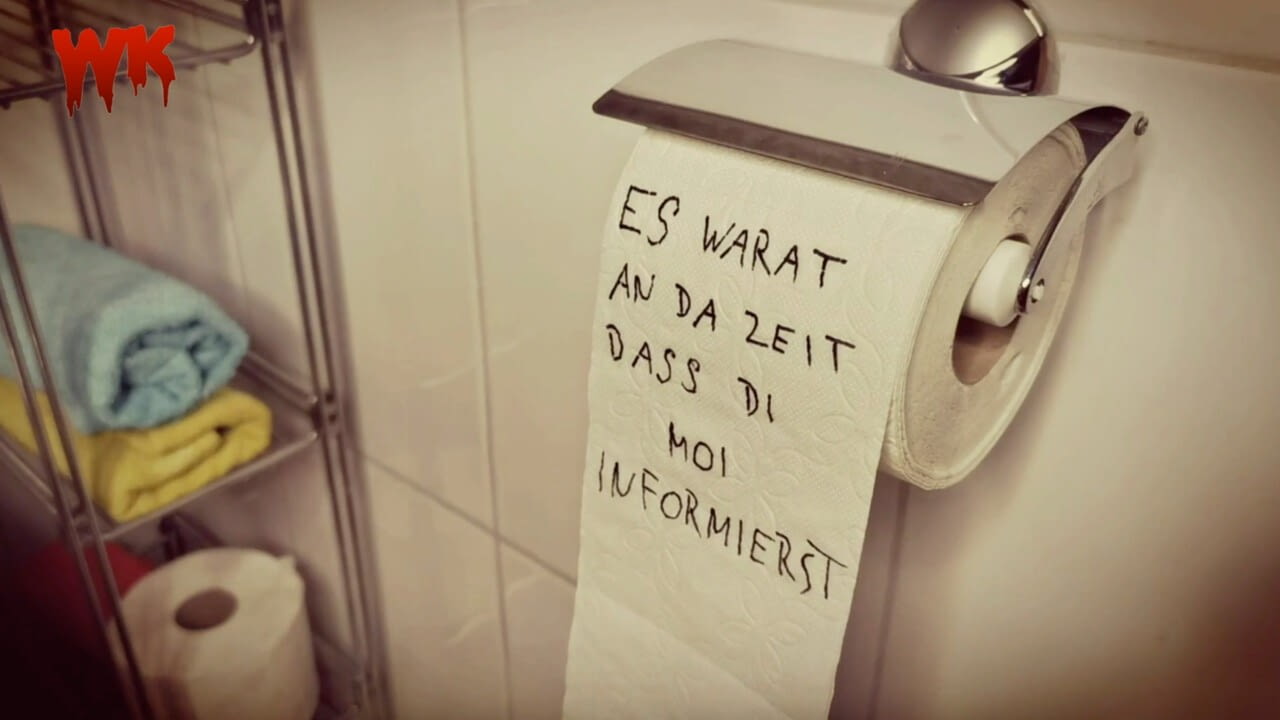 WK
ES WARAT
AN DA ZEIT
DASS DI
MOI
INFORMIERST